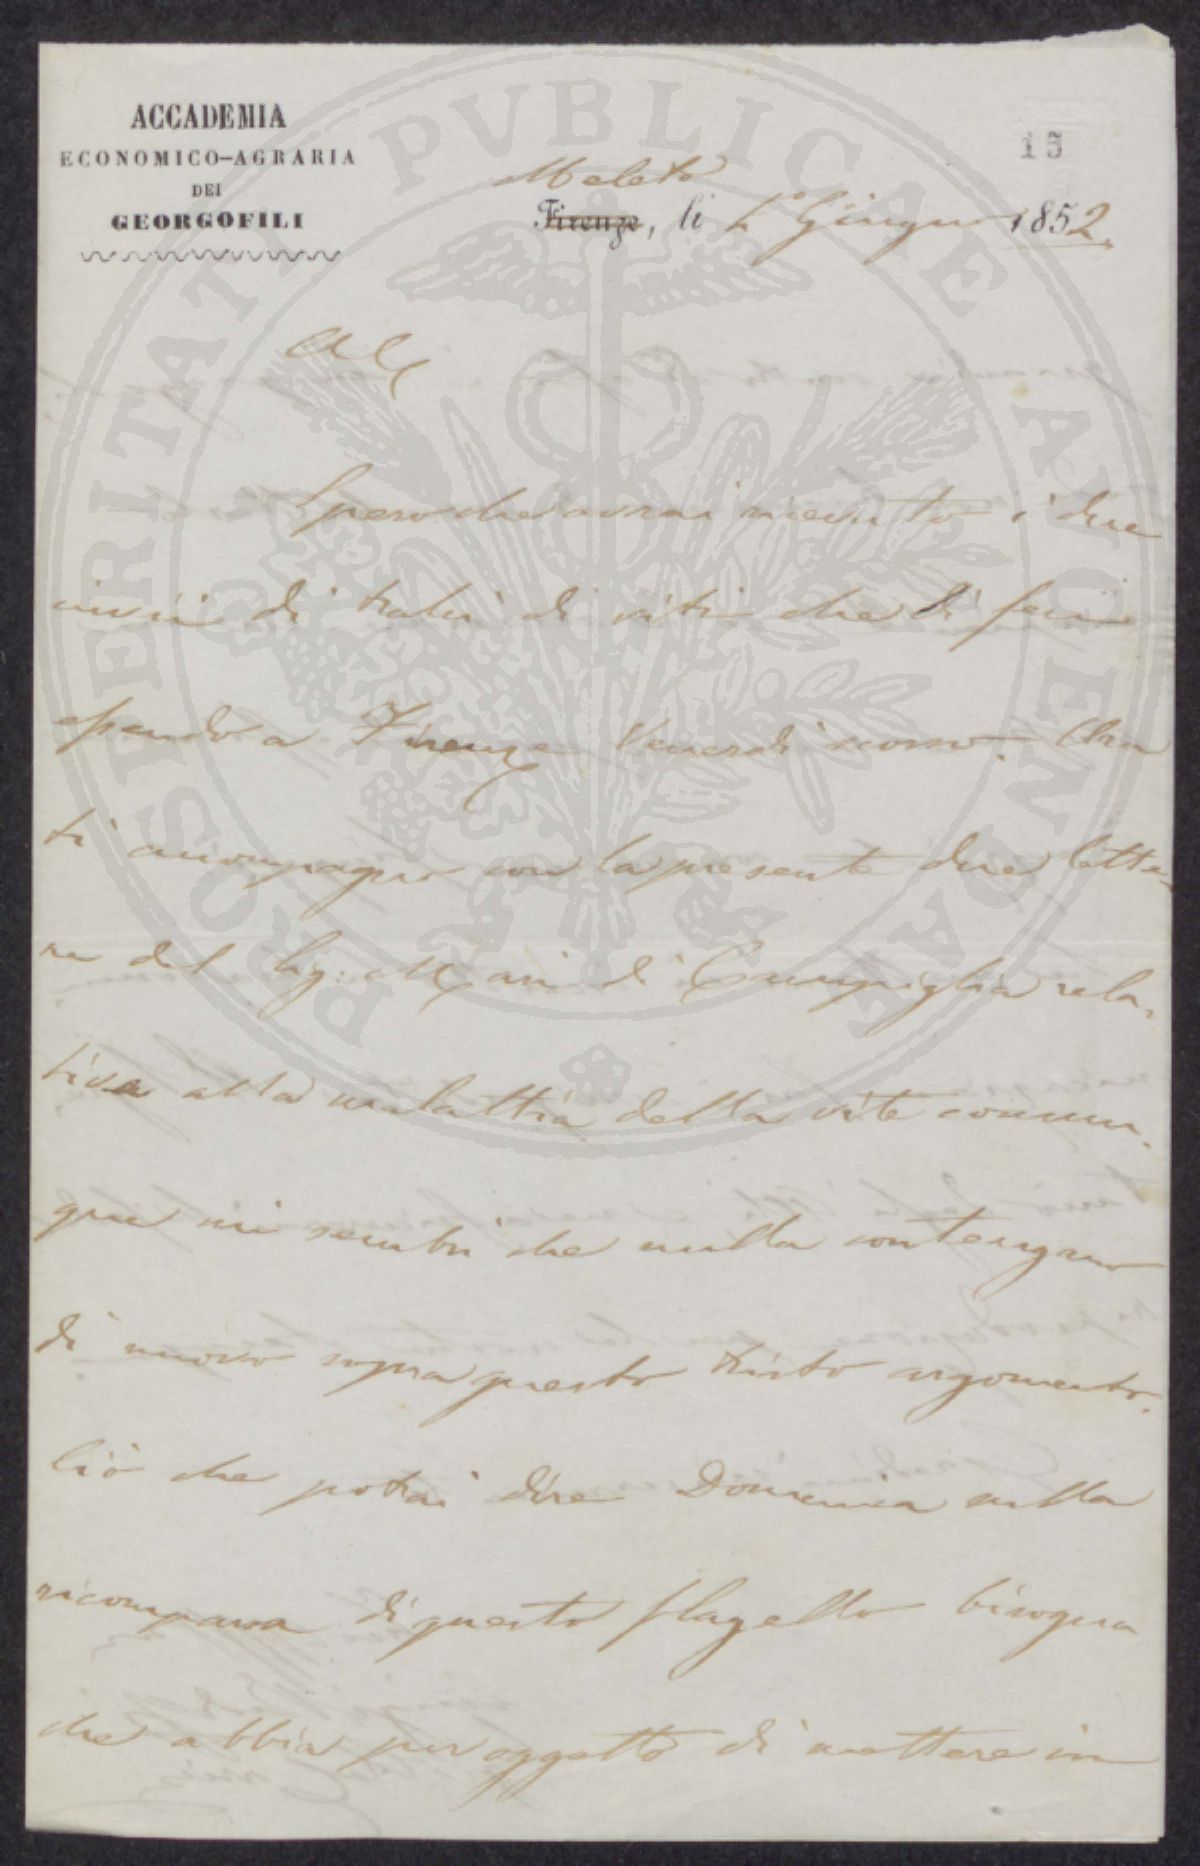 ACCADEMIA
ECONOMICO-AGRARIA
DEI
GEORGOFILI
15
Meleto
Firenze, li 1° Giugno 1852.
PROSPERITATI PVBLICAE AVGENDAE
Spero che avrai ricevuto i due
invii di tralci di viti che ti feci
essendo a Firenze Venerdì scorso. Ora
ti accompagno con la presente due lette-
re del Sig: Mori di Campiglia rela-
tive alla malattia della vite comun-
que mi sembri che nulla contengano
di nuovo sopra questo tristo argomento.
Ciò che potrai dire Domenica sulla
ricomparsa di questo flagello bisogna
che abbia per oggetto di mettere in